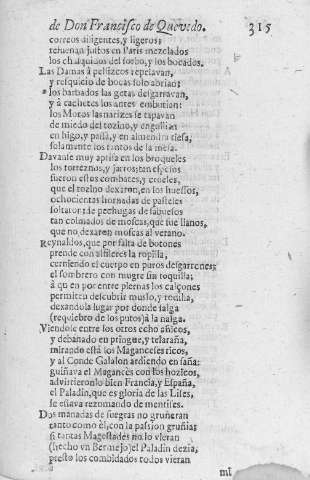 de Don Francisco de Quevedo. 315
correos diligentes, y ligeros;
resuenan juſtos en Paris mezclados
los chasquidos del sorbo, y los bocados.
Las Damas à pellizcos repelavan,
y resquicio de bocas solo abrian;
los barbados las getas desgarravan,
y à cachetes los antes embutian:
los Moros las narizes se tapavan
de miedo del tozino, y engullian
en higo, y passa, y en almendra tiesa,
solamente los tantos de la mesa.
Davanse muy aprisa en los broqueles
los torreznos, y jarros; tan espesos
fueron estos combates, y crueles,
que el tozino dexaron, en los huessos,
ochocientas hornadas de pasteles
soltaron; de pechugas de sabuesos
tan colmados de moscas, que fue llanos,
que no dexaron moscas al verano.
Reynaldos, que por falta de botones
prende con alfileres la ropilla,
cerniendo el cuerpo en puros desgarrones;
el sombrero con mugre sin toquilla;
à quien por entre piernas los calçones
permiten descubrir muslo, y rodilla,
dexandola lugar por donde salga
(requiebro de los putos) à la nalga.
Viendose entre los otros echo añicos,
y debanado en pringue, y telaraña,
mirando està los Maganceses ricos,
y al Conde Galalon ardiendo en saña:
guiñava el Magancès con los hozicos,
advirtieronlo bien Francia, y España,
el Paladin, que es gloria de las Lises,
le estava rezomando de mentises.
Dos manadas de suegras no gruñeran
tanto como èl, con la passion gruñia:
si tantas Magestades no lo vieran
(hecho un Bermejo) el Paladin dezia,
presto los combidados todos vieran
mi